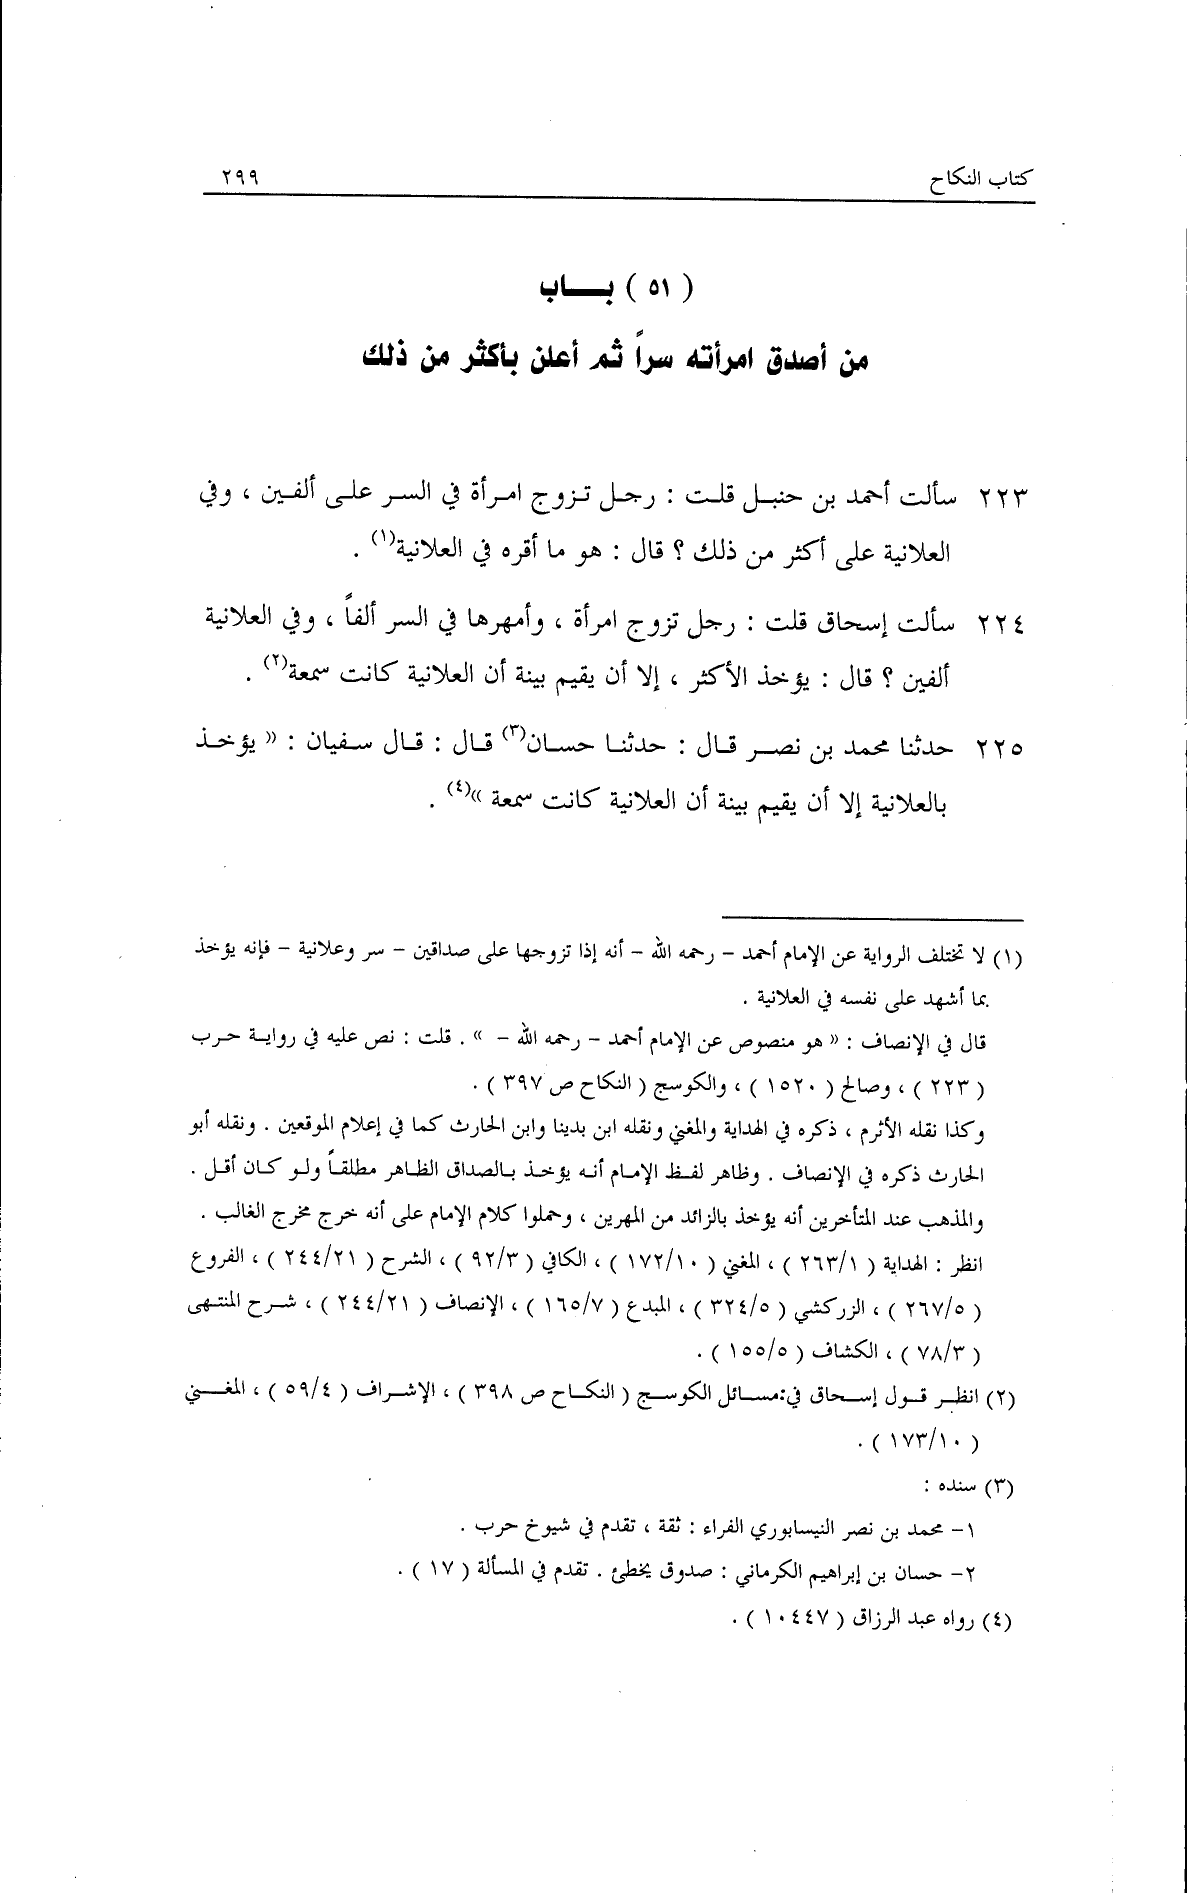 كتاب النكاح ٢٩٩
( ٥١ ) بـــاب
من أصدق امرأته سراً ثم أعلن بأكثر من ذلك
٢٢٣ سألت أحمد بن حنبل قلت : رجل تزوج امرأة في السر على ألفين ، وفي
العلانية على أكثر من ذلك ؟ قال : هو ما أقره في العلانية(١) .
٢٢٤ سألت إسحاق قلت : رجل تزوج امرأة ، وأمهرها في السر ألفاً ، وفي العلانية
ألفين ؟ قال : يؤخذ الأكثر ، إلا أن يقيم بينة أن العلانية كانت سمعة(٢) .
٢٢٥ حدثنا محمد بن نصر قال : حدثنا حسان(٣) قال : قال سفيان : « يؤخذ
بالعلانية إلا أن يقيم بينة أن العلانية كانت سمعة »(٤) .
(١) لا تختلف الرواية عن الإمام أحمد – رحمه الله – أنه إذا تزوجها على صداقين – سر وعلانية – فإنه يؤخذ
بما أشهد على نفسه في العلانية .
قال في الإنصاف : « هو منصوص عن الإمام أحمد – رحمه الله – » . قلت : نص عليه في رواية حرب
( ٢٢٣ ) ، وصالح ( ١٥٢٠ ) ، والكوسج ( النكاح ص ٣٩٧ ) .
وكذا نقله الأثرم ، ذكره في الهداية والمغني ونقله ابن بدينا وابن الحارث كما في إعلام الموقعين . ونقله أبو
الحارث ذكره في الإنصاف . وظاهر لفظ الإمام أنه يؤخذ بالصداق الظاهر مطلقاً ولو كان أقل .
والمذهب عند المتأخرين أنه يؤخذ بالزائد من المهرين ، وحملوا كلام الإمام على أنه خرج مخرج الغالب .
انظر : الهداية ( ٢٦٣/١ ) ، المغني ( ١٧٢/١٠ ) ، الكافي ( ٩٢/٣ ) ، الشرح ( ٢٤٤/٢١ ) ، الفروع
( ٢٦٧/٥ ) ، الزركشي ( ٣٢٤/٥ ) ، المبدع ( ١٦٥/٧ ) ، الإنصاف ( ٢٤٤/٢١ ) ، شرح المنتهى
( ٧٨/٣ ) ، الكشاف ( ١٥٥/٥ ) .
(٢) انظر قول إسحاق في:مسائل الكوسج ( النكاح ص ٣٩٨ ) ، الإشراف ( ٥٩/٤ ) ، المغني
( ١٧٣/١٠ ) .
(٣) سنده :
١– محمد بن نصر النيسابوري الفراء : ثقة ، تقدم في شيوخ حرب .
٢– حسان بن إبراهيم الكرماني : صدوق يخطئ . تقدم في المسألة ( ١٧ ) .
(٤) رواه عبد الرزاق ( ١٠٤٤٧ ) .